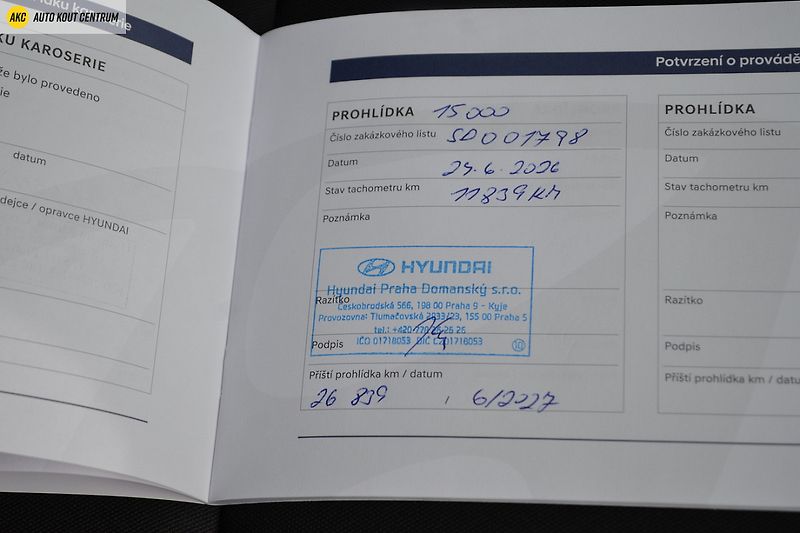 AKC AUTO KOUT CENTRUM
KU KAROSERIE
že bylo provedeno
datum
dejce / opravce HYUNDAI
Potvrzení o provádě
PROHLÍDKA 15 000
Číslo zakázkového listu SD001798
Datum 24.6.2026
Stav tachometru km 11839 KM
Poznámka
HYUNDAI
Hyundai Praha Domanský s.r.o.
Razítko
Českobrodská 566, 198 00 Praha 9 - Kyje
Provozovna: Tlumačovská 2833/23, 155 00 Praha 5
Podpis
IČO 01718053
10
Příští prohlídka km / datum
26 839 / 6/2027
PROHLÍDKA
Číslo zakázkového listu
Datum
Stav tachometru km
Poznámka
Razítko
Podpis
Příští prohlídka km / datu